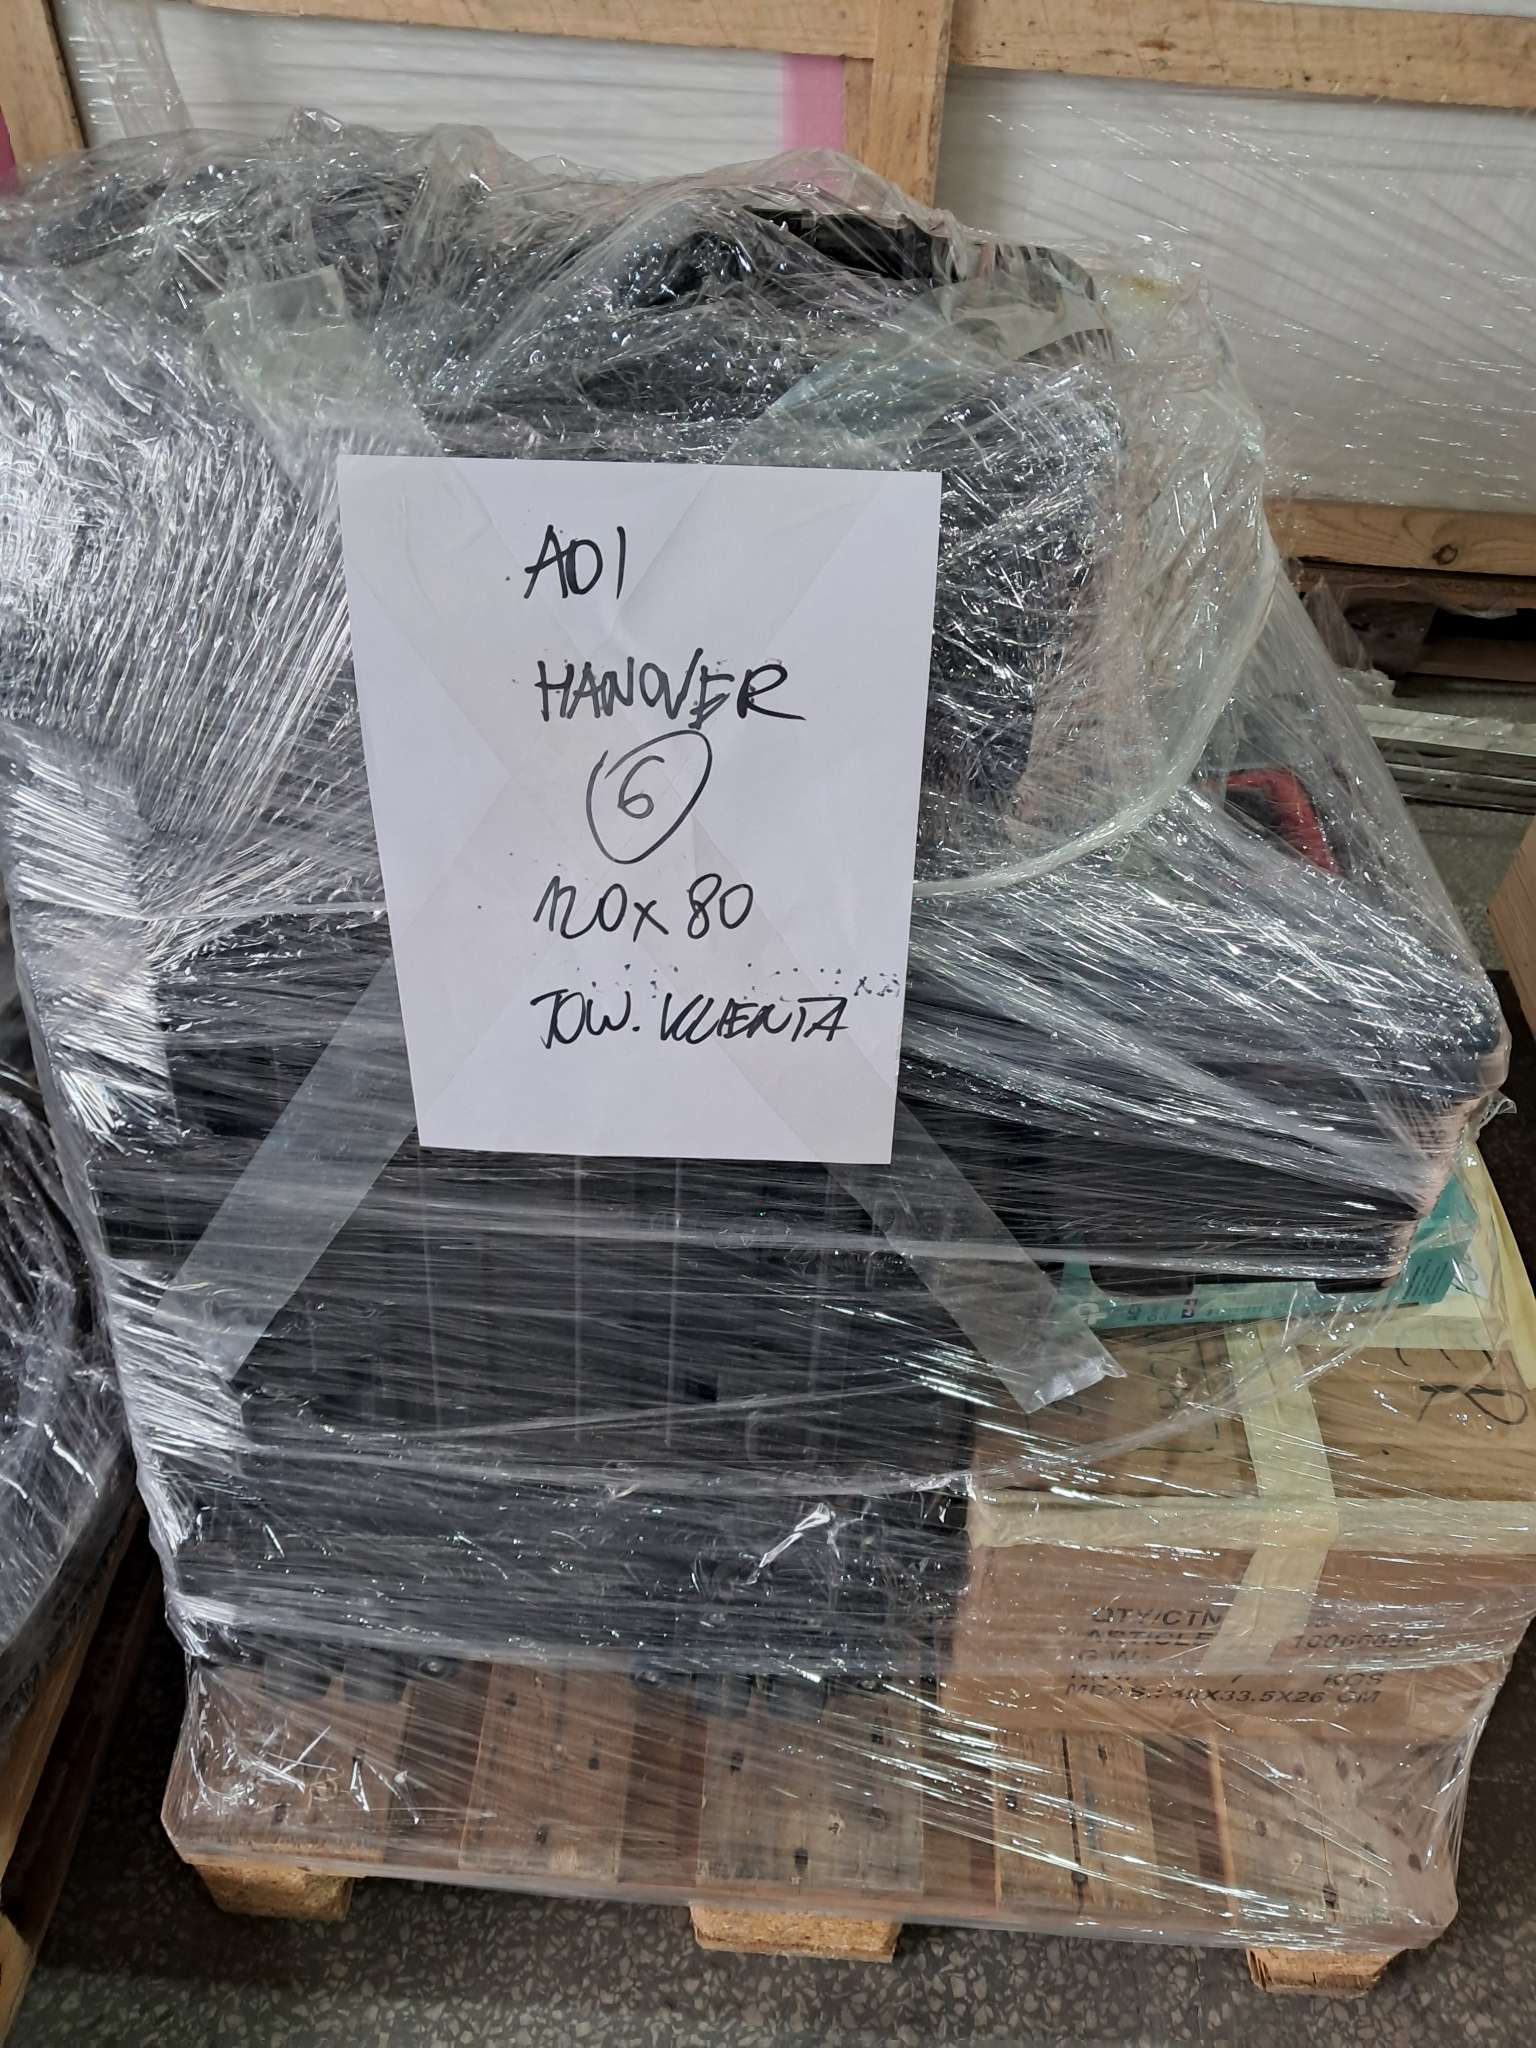 AOI
HANOVER
6
120x80
TOW. KLIENTA
QTY/CTN
ARTICLE
G.W.:
N.W.: KGS
MEAS.: 40X33.5X26 CM